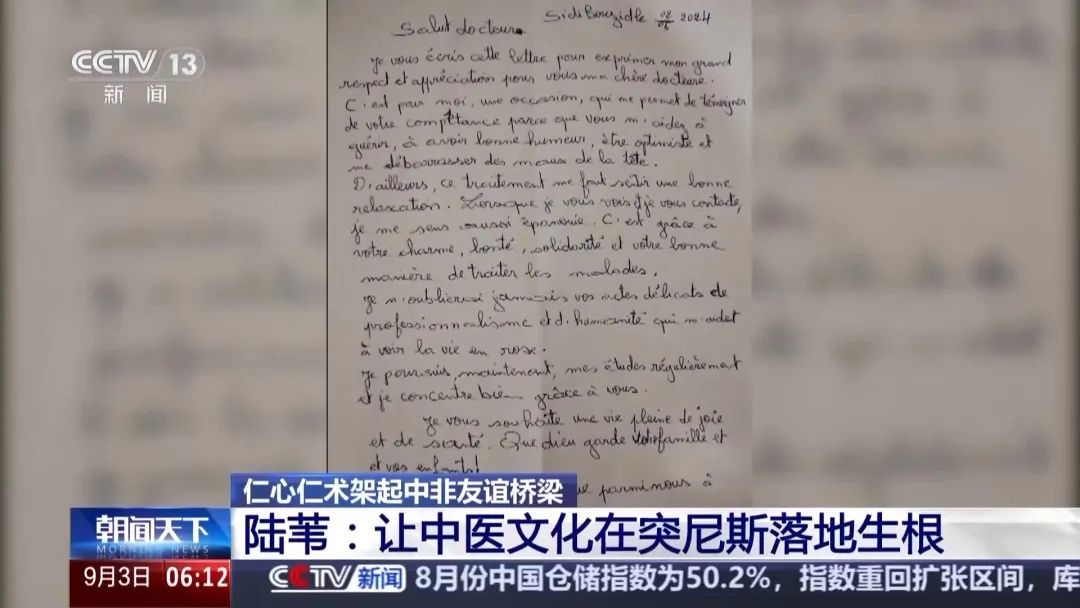 CCTV 13
新闻
Sidi Bouzid le 08/05 2024
Salut docteur.
Je vous écris cette lettre pour exprimer mon grand
respect et appréciation pour vous ma chère docteure.
C'est pour moi, une occasion, qui me permet de témoigner
de votre compttance parce que vous m'aidez à
guérir, à avoir bonne humeur, être optimiste et
me débarrasser des maux de la tête.
D'ailleurs, ce traitement me fait sentir une bonne
relaxation. Lorsque je vous vois, je vous contacte,
je me sens aussi épanouie. C'est grâce à
votre charme, bonté, solidarité et votre bonne
manière de traiter les malades.
Je n'oublierai jamais vos actes délicats de
professionnalisme et d'humanité qui m'aident
à voir la vie en rose.
Je poursuis, maintenant, mes études régulièrement
et je concentre bien grâce à vous.
Je vous souhaite une vie pleine de joie
et de santé. Que dieu garde votre famille et
et vos enfants!
parmi nous à
仁心仁术架起中非友谊桥梁
朝闻天下
MORNING NEWS
陆苇：让中医文化在突尼斯落地生根
9月3日 06:12
CCTV 新闻 8月份中国仓储指数为50.2%，指数重回扩张区间，库